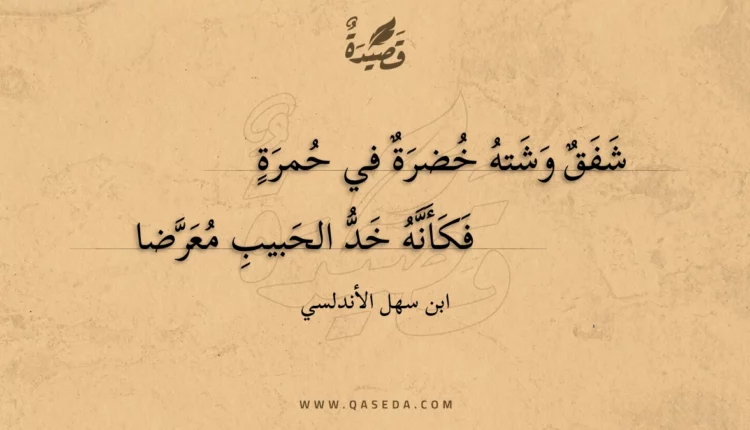 قَصِيدَةٌ
شَفَقٌ وَشَتهُ خُضرَةٌ في حُمرَةٍ
فَكَأَنَّهُ خَدُّ الحَبيبِ مُعَرَّضا
ابن سهل الأندلسي
WWW.QASEDA.COM